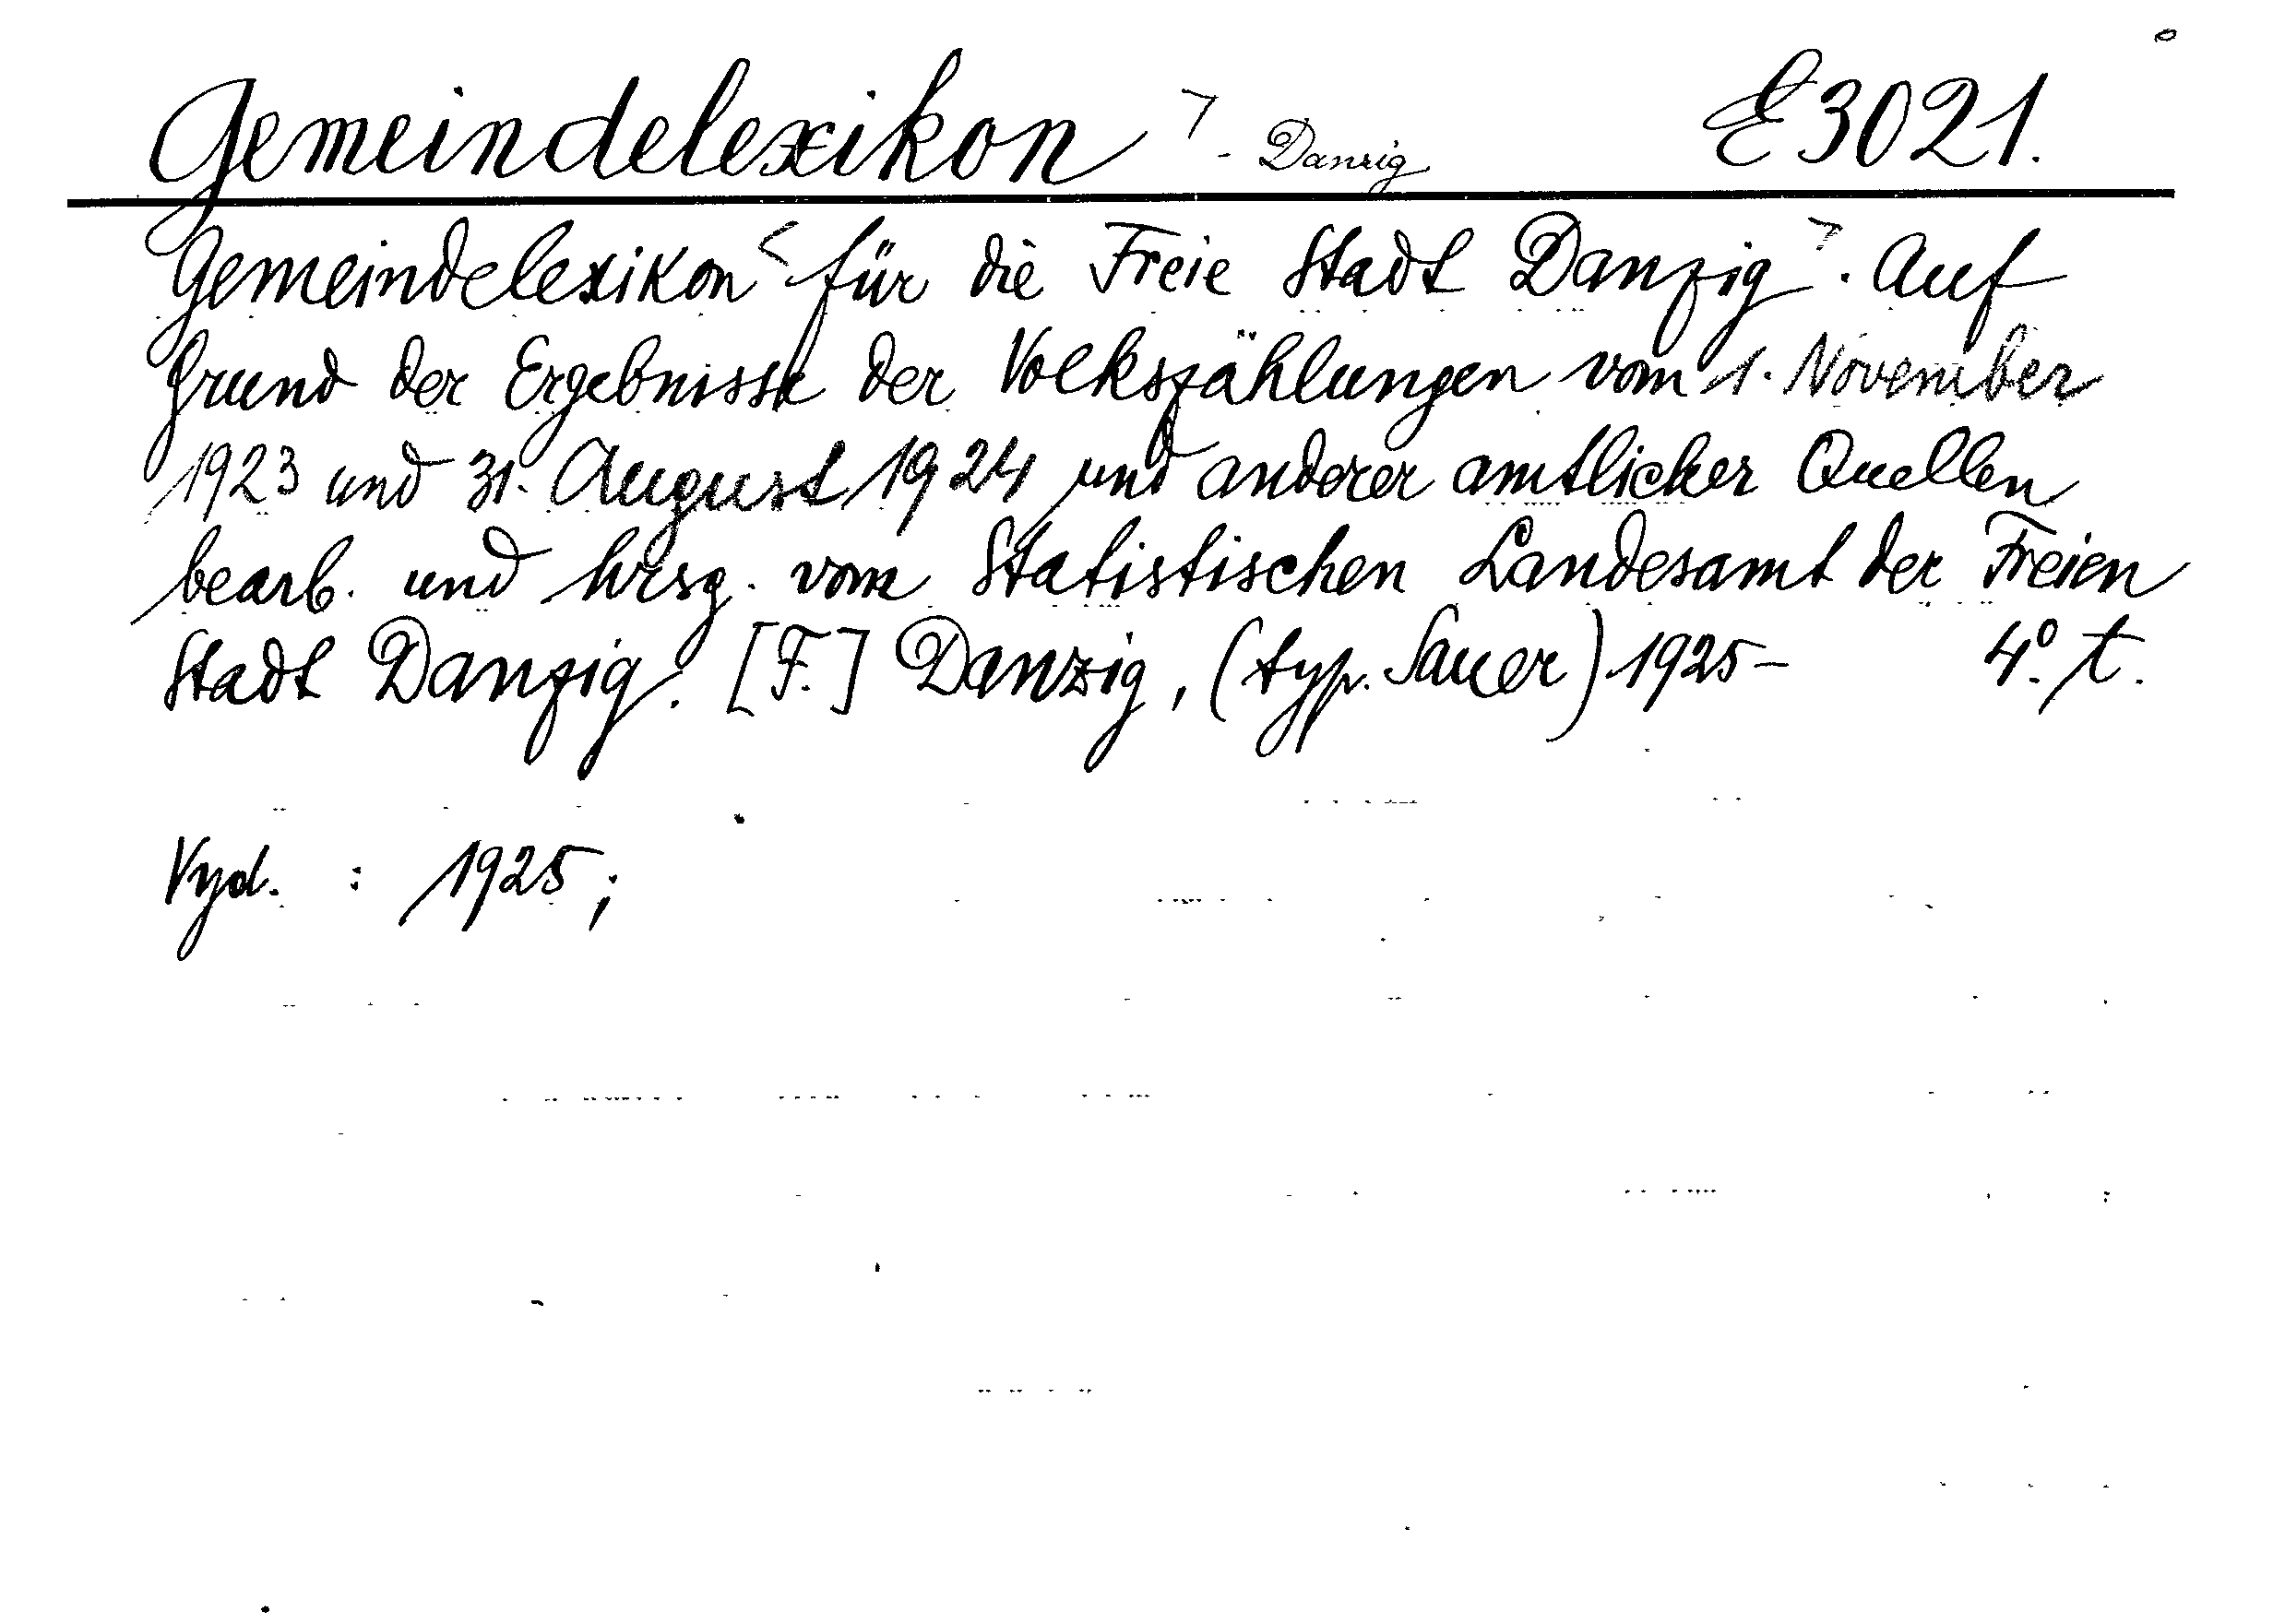 Gemeindelexikon - Danzig E 3021.
Gemeindelexikon < für die Freie Stadt Danzig. Auf
Grund der Ergebnisse der Volkszählungen vom 1. November
1923 und 31. August 1924 und anderer amtlicher Quellen
bearb. und hrsg. vom Statistischen Landesamt der Freien
Stadt Danzig. [F.] Danzig, (typ. Sauer) 1925- 4°. t.
Vyd. : 1925;